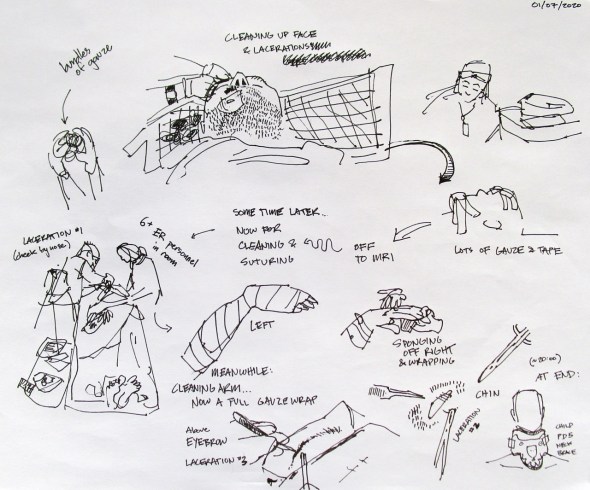 01/07/2020
CLEANING UP FACE
& LACERATIONS
bundles
of gauze
LOTS OF GAUZE & TAPE
OFF
TO MRI
SOME TIME LATER...
NOW FOR
CLEANING &
SUTURING
6+
ER personnel
in room
LACERATION #1
(cheek by nose)
LEFT
MEANWHILE:
CLEANING ARM...
NOW A FULL GAUZE WRAP
SPONGING
OFF RIGHT
& WRAPPING
CHIN
LACERATION
#2
Above
EYEBROW
LACERATION #3
(~20:00)
AT END:
CHILD
NEW